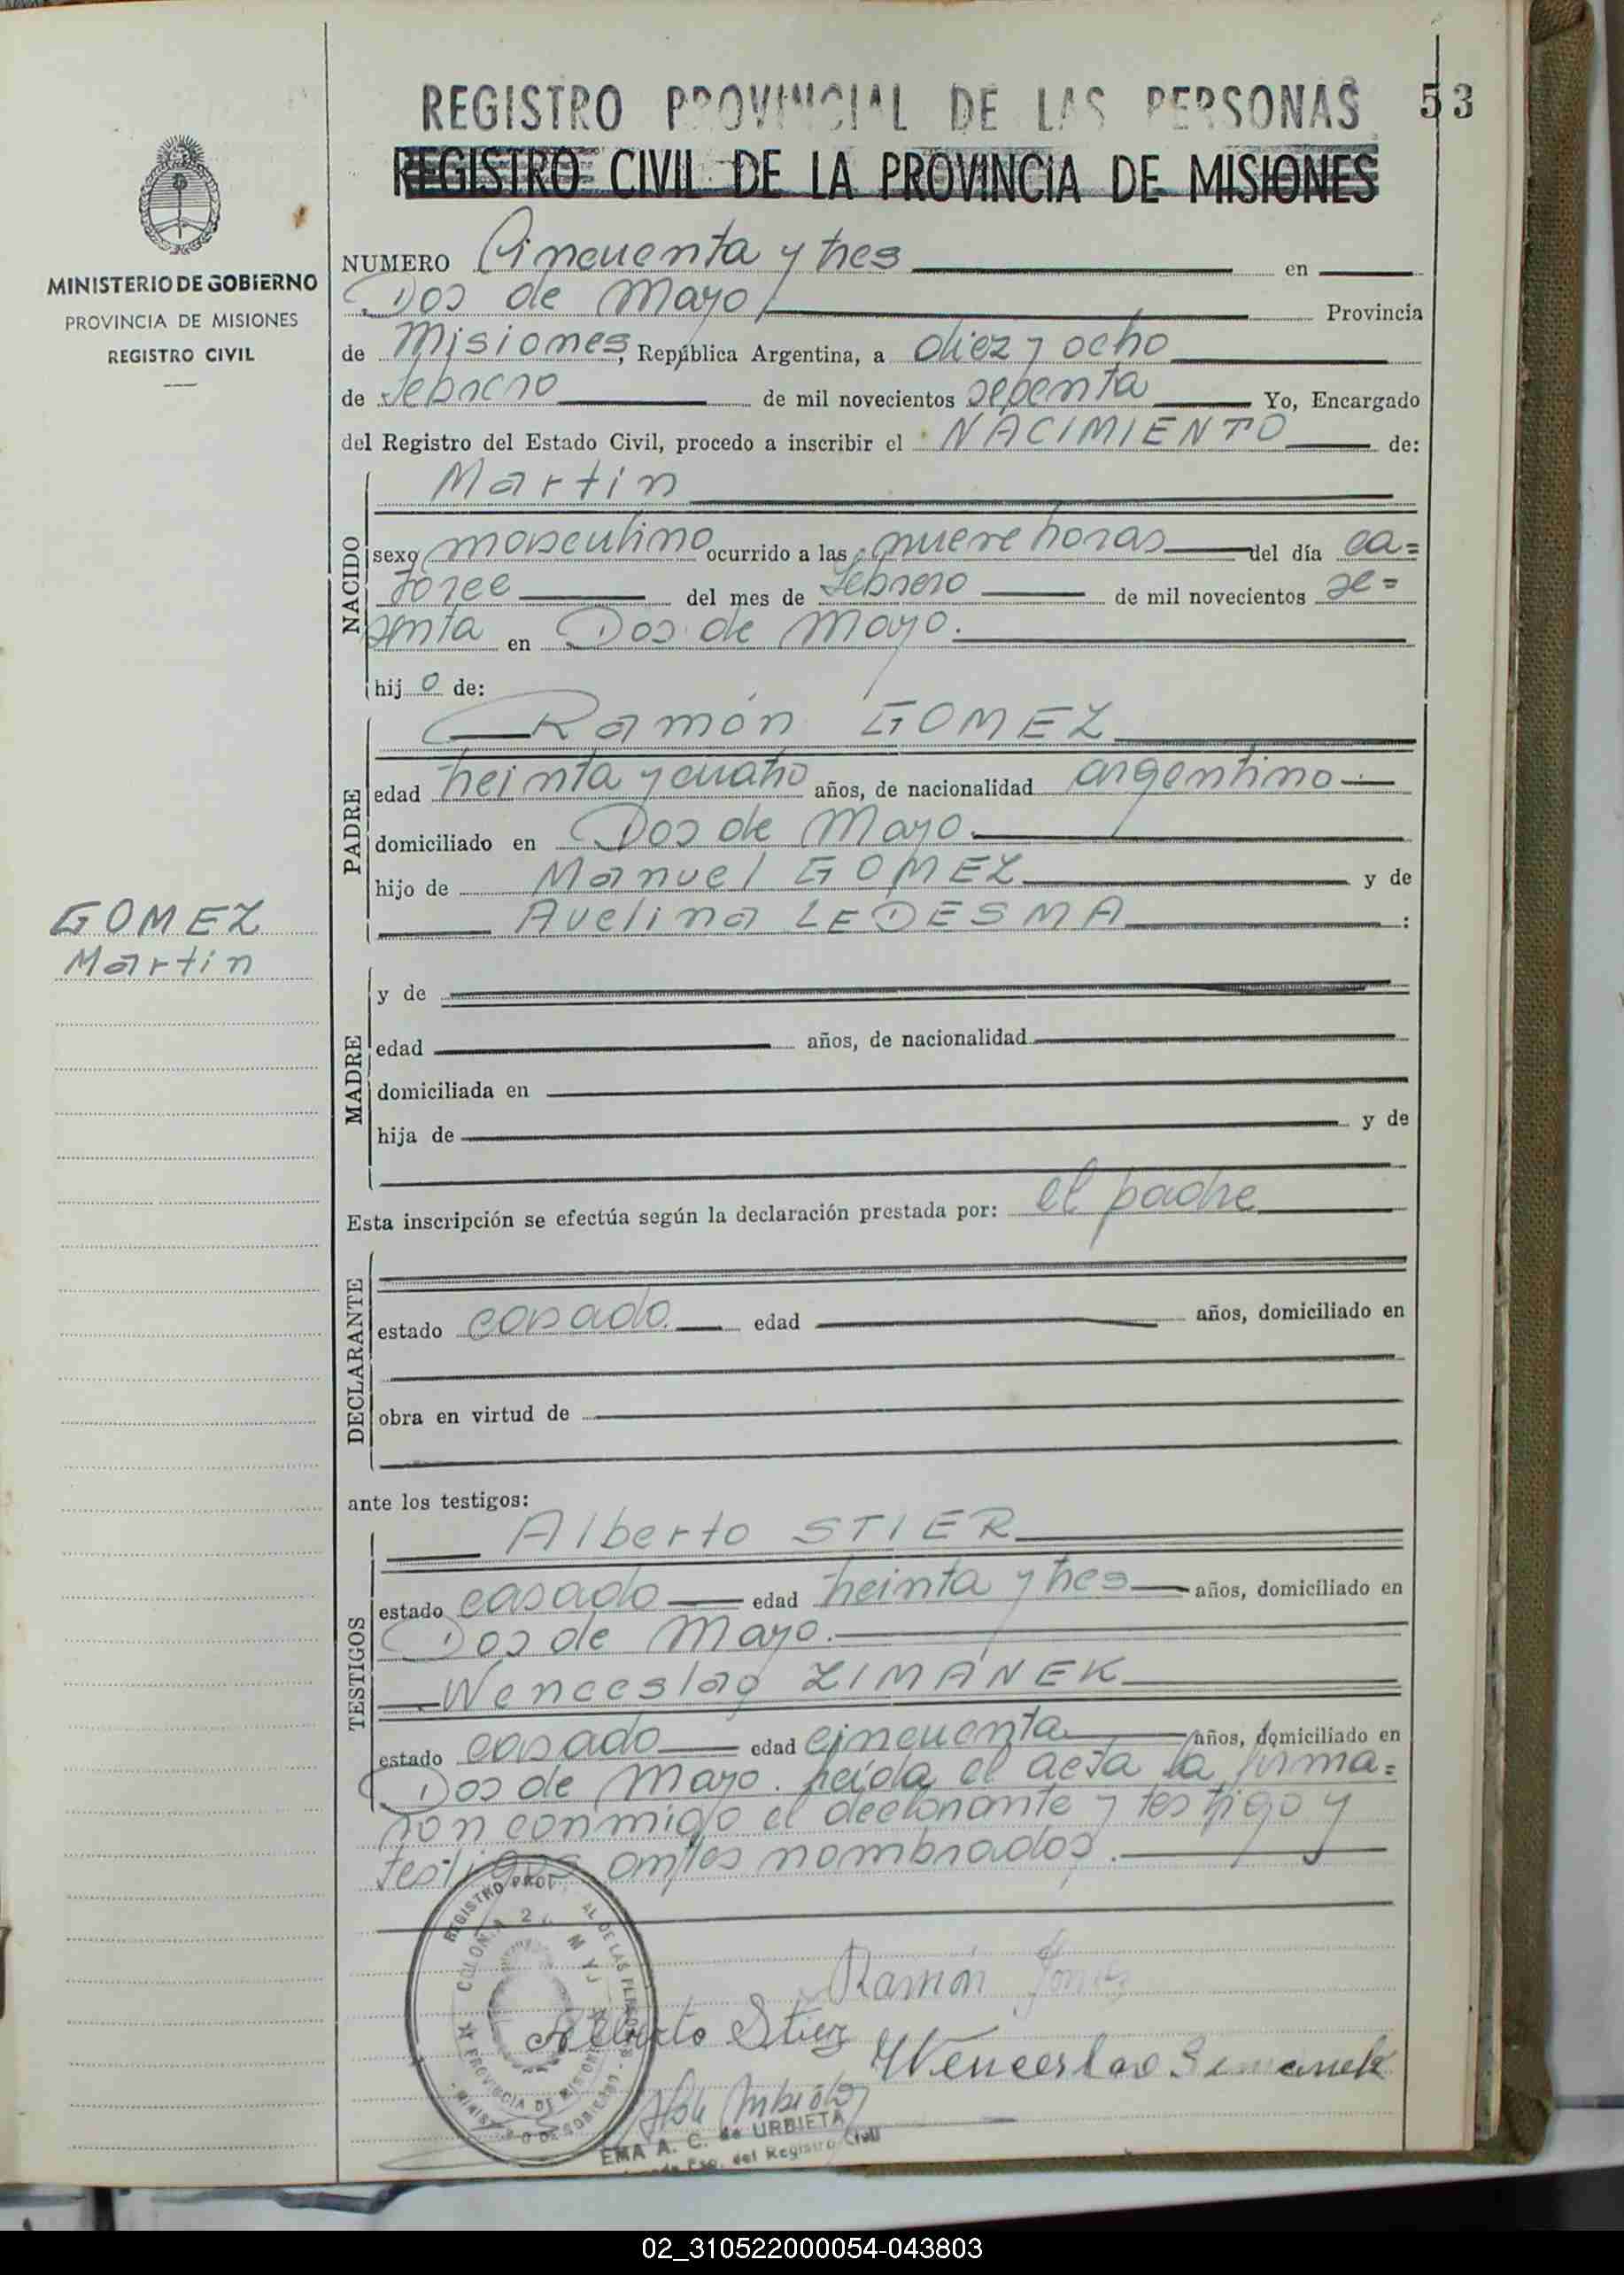 REGISTRO PROVINCIAL DE LAS PERSONAS 53
REGISTRO CIVIL DE LA PROVINCIA DE MISIONES
MINISTERIO DE GOBIERNO
PROVINCIA DE MISIONES
REGISTRO CIVIL
NUMERO Cincuenta y tres en
Dos de Mayo Provincia
de Misiones, República Argentina, a diez y ocho
de febrero de mil novecientos setenta Yo, Encargado
del Registro del Estado Civil, procedo a inscribir el NACIMIENTO de:
NACIDO
Martín
sexo masculino ocurrido a las nueve horas del día ca=
torce del mes de febrero de mil novecientos se=
tenta en Dos de Mayo.
hijo de:
PADRE
Ramón GOMEZ
edad treinta y cuatro años, de nacionalidad argentino
domiciliado en Dos de Mayo.
hijo de Manuel GOMEZ y de
Avelina LEDESMA :
GOMEZ
Martín
MADRE
y de
edad años, de nacionalidad
domiciliada en
hija de y de
Esta inscripción se efectúa según la declaración prestada por: el padre
DECLARANTE
estado casado edad años, domiciliado en
obra en virtud de
ante los testigos:
TESTIGOS
Alberto STIER
estado casado edad treinta y tres años, domiciliado en
Dos de Mayo.
Wenceslao ZIMANEK
estado casado edad cincuenta años, domiciliado en
Dos de Mayo. Leída el acta la firma=
ron conmigo el declarante y testigo y
testigos antes nombrados.
Ramón Gomez
Alberto Stier Wenceslao
EMA A. C. de URBIETA
del Registro Civil
COLONIA 2 MAYO
PROVINCIA DE MISIONES
02_310522000054-043803